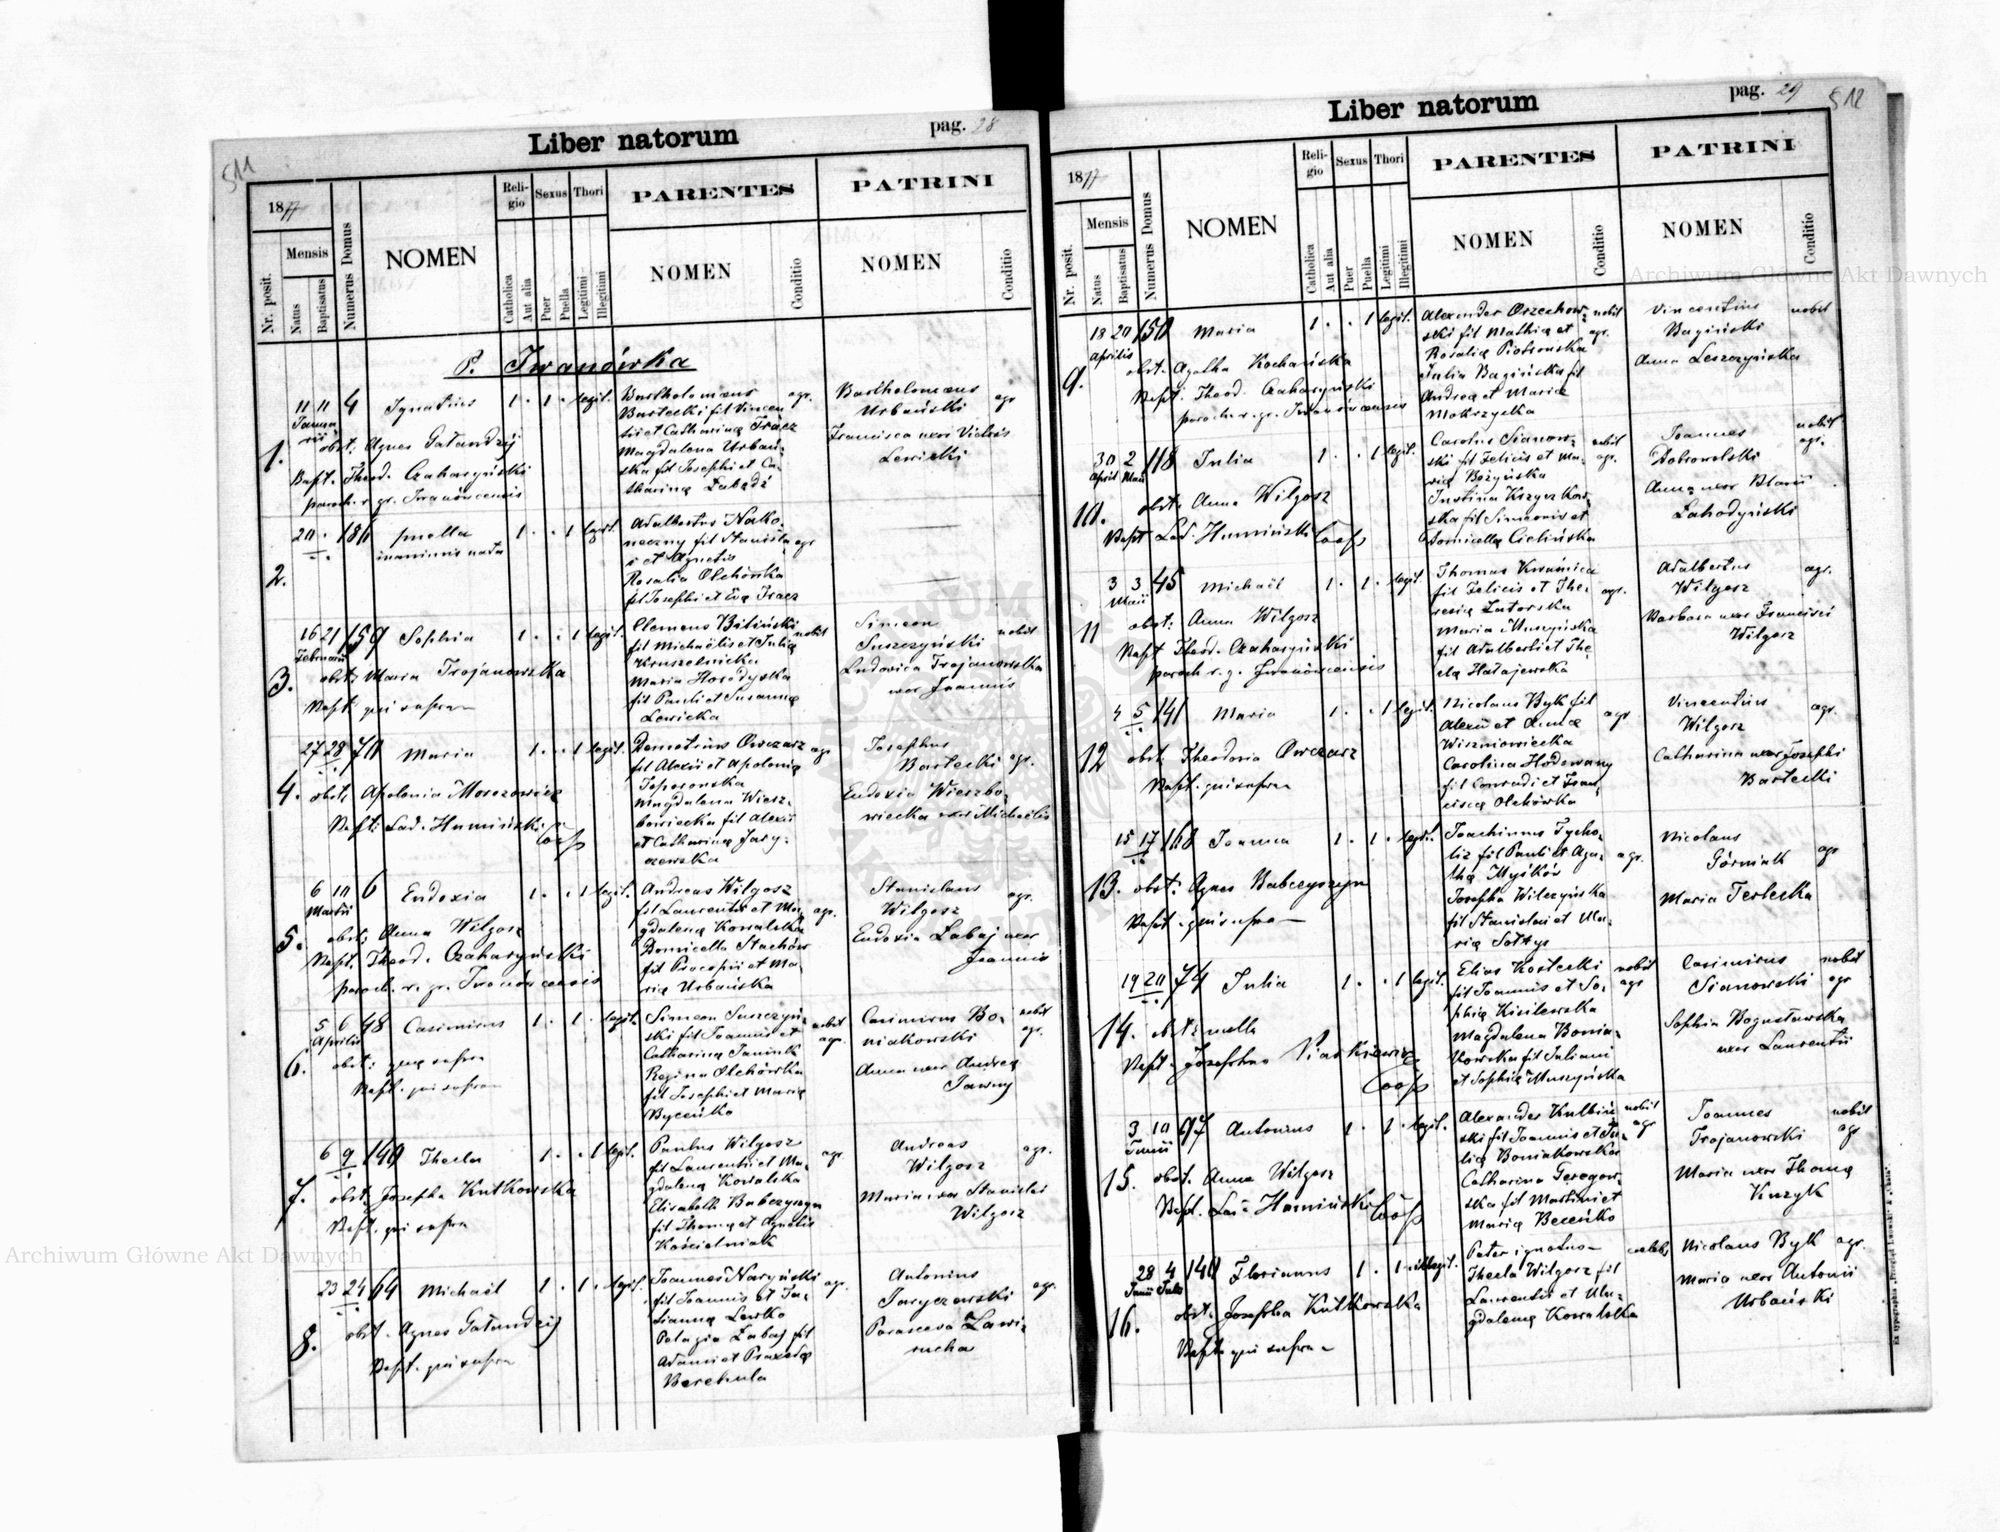 511
Liber natorum
pag. 28
1877
Mensis
Nr. posit.
Natus
Baptisatus
Numerus Domus
NOMEN
Reli-
gio
Sexus
Thori
Catholica
Aut alia
Puer
Puella
Legitimi
Illegitimi
PARENTES
NOMEN
Conditio
PATRINI
NOMEN
Conditio
P. Iwanówka
1.
11 11 4 Ignatius 1 · 1 · legit.
Januarii
obst. Agnes Gałandzij
Bapt. Theod. Czaharyński
paroch. r. gr. Iwanówcensis
Bartholomæus agr.
Bartecki fil Vincen
tii et Catharinæ Tracz
Magdalena Urbań-
ska fil Josephi et Ca-
tharinæ Łabędź
Bartholomæus
Urbański agr
Francisca uxor Victoris
Lewicki
2.
20 · 186 puella 1 · · 1 legit.
innominis nata
Adalbertus Nako-
neczny fil Stanisla agr
i et Agnetis
Rosalia Olchówka
fil Josephi et Evæ Tracz
3.
16 21 159 Sophia 1 · · 1 legit.
Februarii
obst. Maria Trojanowska
Bapt. qui supra
Clemens Biliński
fil Michaëlis et Juliæ nobil
Kruszelnicka
Maria Horodyska
fil Pauli et Susannæ
Lewicka
Simeon
Suszczyński nobil
Ludovica Trojanowska
uxor Joannis
4.
27 28 70 Maria 1 · · 1 legit.
obst. Apolonia Morozowicz
Bapt. Lad. Humiński
Coop
Demetrius Owczarz agr
fil Alexii et Apoloniæ
Toporowska
Magdalena Wierz-
bowiecka fil Alexii
et Catharinæ Jary-
czewska
Josephus
Bartecki agr.
Eudoxia Wierzbo-
wiecka uxor Michaëlis
5.
6 10 6 Eudoxia 1 · · 1 legit.
Martii
obst. Anna Wilgosz
Bapt. Theod. Czaharyński
paroch. r. gr. Iwanówcensis
Andreas Wilgosz
fil Laurentii et Ma- agr.
gdalenæ Kowalska
Domicella Stachów
fil Procopii et Ma-
riæ Urbańska
Stanislaus agr.
Wilgosz
Eudoxia Łabaj uxor
Joannis
6.
5 6 48 Casimirus 1 · 1 · legit.
Aprilis
obst. quæ supra
Bapt. qui supra
Simeon Suszczyń- nobil
ski fil Joannis et agr.
Catharinæ Janiuk
Regina Olchówka
fil Josephi et Mariæ
Byceńko
Casimirus Bo- nobil
niakowski agr.
Anna uxor Andreæ
Tawny
7.
6 9 149 Thecla 1 · · 1 legit.
obst. Josepha Kutkowska
Bapt. qui supra
Paulus Wilgosz
fil Laurentii et Ma- agr.
gdalenæ Kowalska
Elisabeth Babczyszyn
fil Thomæ et Agnetis
Kościelniak
Andreas agr.
Wilgosz
Maria uxor Stanislai
Wilgosz
8.
23 24 64 Michaël 1 · 1 · legit.
obst. Agnes Gałandzij
Bapt. qui supra
Joannes Naryński agr.
fil Joannis et Ju-
liannæ Lewko
Pelagia Łabaj fil
Adami et Praxedæ
Berehula
Antonius
Jaryczewski agr.
Parasceva Zawi-
rucha
512
Liber natorum
pag. 29
1877
Mensis
Nr. posit.
Natus
Baptisatus
Numerus Domus
NOMEN
Reli-
gio
Sexus
Thori
Catholica
Aut alia
Puer
Puella
Legitimi
Illegitimi
PARENTES
NOMEN
Conditio
PATRINI
NOMEN
Conditio
9.
18 20 150 Maria 1 · · 1 legit.
Aprilis
obst. Agatha Kochańska
Bapt. Theod. Czaharyński
paroch. r. gr. Iwanówcensis
Alexander Orzechow- nobil
ski fil Mathiæ et agr.
Rosaliæ Piotrowska
Julia Bagińska fil
Andreæ et Mariæ
Mokrzycka
Vincentius nobil
Bagiński
Anna Leszczyńska
10.
30 2 118 Julia 1 · · 1 legit.
April Maii
obst. Anna Wilgosz
Bapt Lad. Humiński Coop
Carolus Sianow- nobil
ski fil Felicis et Ma- agr.
riæ Bożyńska
Justina Krzyczkow-
ska fil Simeonis et
Domicellæ Cielińska
Joannes nobil
Dobrowolski agr.
Anna uxor Blasii
Lahodyński
11
3 3 45 Michaël 1 · 1 · legit.
Maii
obst. Anna Wilgosz
Bapt Theod. Czaharyński
paroch r. g. Iwanówcensis
Thomas Kwaśnica
fil Felicis et The- agr.
resiæ Zatorska
Maria Muszyńska
fil Adalberti et The-
clæ Hałajewska
Adalbertus agr.
Wilgosz
Barbara uxor Francisci
Wilgosz
12
4 5 141 Maria 1 · · 1 legit.
obst. Theodora Owczarz
Bapt. qui supra
Nicolaus Byk fil
Alexii et Annæ agr
Wiszniowiecka
Carolina Hodowany
fil Conradi et Fran-
ciscæ Olchówka
Vincentius
Wilgosz agr.
Catharina uxor Josephi
Bartecki
13.
15 17 168 Joanna 1 · 1 · legit.
obst. Agnes Babczyszyn
Bapt. qui supra
Joachimus Tycho-
liz fil Pauli et Aga- agr.
thæ Myśków
Josepha Wilczyńska
fil Stanislai et Ma-
riæ Sołtys
Nicolaus
Górniak agr
Maria Terlecka
14.
19 20 74 Julia 1 · · 1 legit.
obst. nulla
Bapt. Josephus Piaskiewicz
Coop
Elias Kostecki nobil
fil Joannis et So- agr
phiæ Kisilewska
Magdalena Bonia-
kowska fil Juliani
et Sophiæ Muszyńska
Casimirus nobil
Sianowski agr
Sophia Bogusławska
uxor Laurentii
15.
3 10 97 Antonius 1 · 1 · legit.
Junii
obst. Anna Wilgosz
Bapt. Lad. Humiński Coop
Alexander Kulbiń- nobil
ski fil Joannis et Ju- agr
liæ Boniakowska
Catharina Geregow-
ska fil Martini et
Mariæ Beceńko
Joannes nobil
Trojanowski agr
Maria uxor Thomæ
Kuzyk
16.
28 4 140 Florianus 1 · 1 · illegit.
Junii Julii
obst. Josepha Kutkowska
Bapt qui supra
Pater ignotus
Thecla Wilgosz fil coeleb.
Laurentii et Ma-
gdalenæ Kowalska
Nicolaus Byk agr.
Maria uxor Antonii
Urbański
Archiwum Główne Akt Dawnych
Archiwum Główne Akt Dawnych